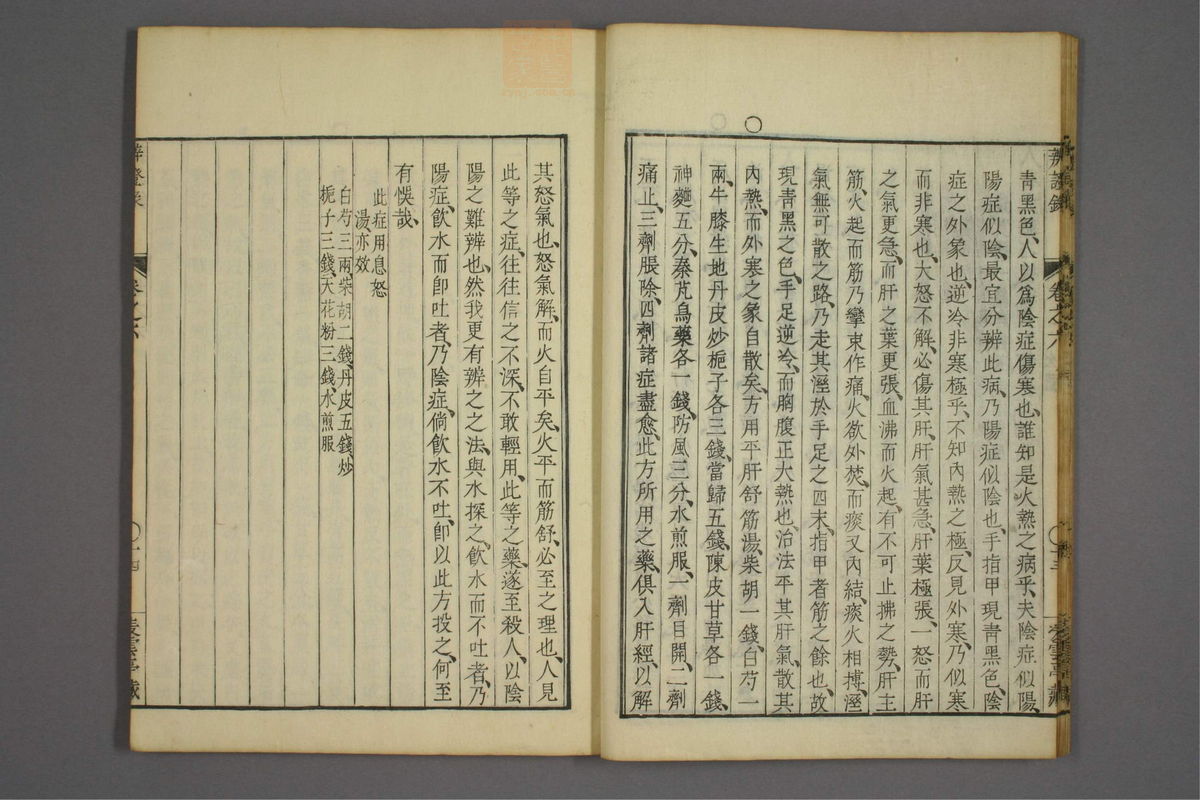 辨證錄 卷之六 〇十三
青黑色、人以為陰症傷寒也、誰知是火熱之病乎、夫陰症似陽、
陽症似陰、最宜分辨此病、乃陽症似陰也、手指甲現靑黑色、陰
症之外象也、逆冷非寒極乎、不知內熱之極、反見外寒、乃似寒
而非寒也、大怒不解、必傷其肝、肝氣甚急、肝葉極張、一怒而肝
之氣更急、而肝之葉更張、血沸而火起、有不可止拂之勢、肝主
筋、火起而筋乃攣束作痛、火欲外焚、而痰又內結、痰火相搏、溼
氣無可散之路、乃走其溼於手足之四末、指甲者筋之餘也、故
現靑黑之色、手足逆冷、而胸腹正大熱也、治法平其肝氣、散其
內熱、而外寒之象自散矣、方用平肝舒筋湯、柴胡一錢、白芍一
兩、牛膝生地丹皮炒梔子各三錢、當歸五錢、陳皮甘草各一錢、
神麯五分、秦艽烏藥各一錢、防風三分、水煎服、一劑目開、二劑
痛止、三劑脹除、四劑諸症盡愈、此方所用之藥、俱入肝經以解
其怒氣也、怒氣解、而火自平矣、火平而筋舒、必至之理也、人見
此等之症、往往信之不深、不敢輕用、此等之藥、遂至殺人、以陰
陽之難辨也、然我更有辨之之法、與水探之、飲水而不吐者、乃
陽症、飲水而卽吐者、乃陰症、倘飲水不吐、卽以此方投之、何至
有悞哉、
此症用息怒
湯亦效
白芍三兩、柴胡二錢、丹皮五錢、炒
梔子三錢、天花粉三錢、水煎服
辨證錄 卷之六 〇十四